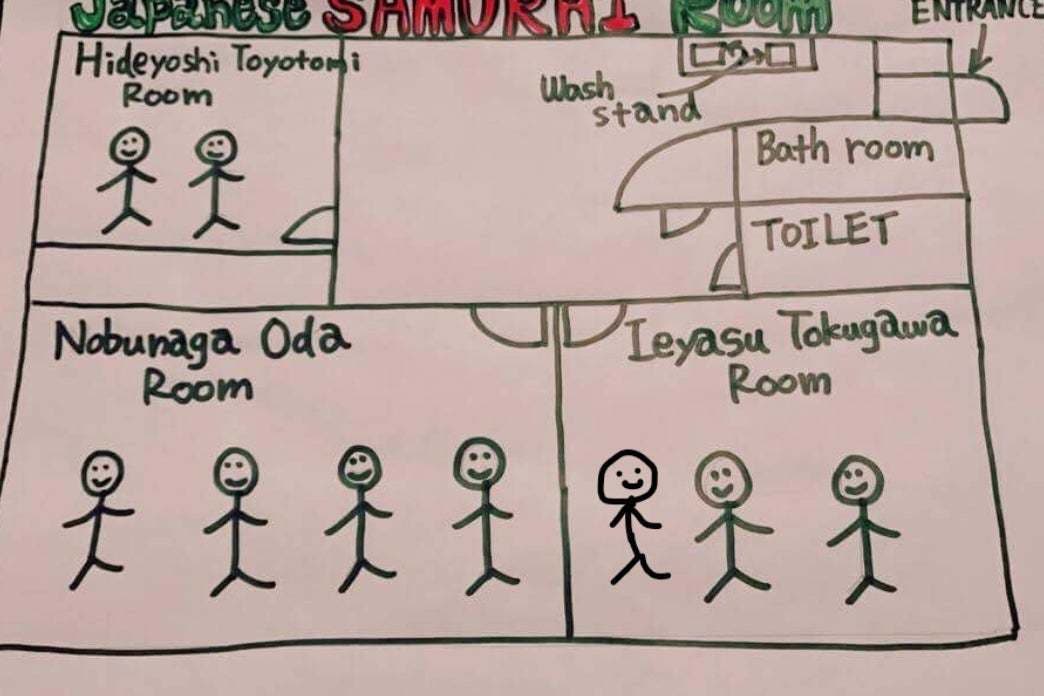 Japanese SAMURAI Room
ENTRANCE
Hideyoshi Toyotomi
Room
Wash
stand
Bath room
TOILET
Nobunaga Oda
Room
Ieyasu Tokugawa
Room